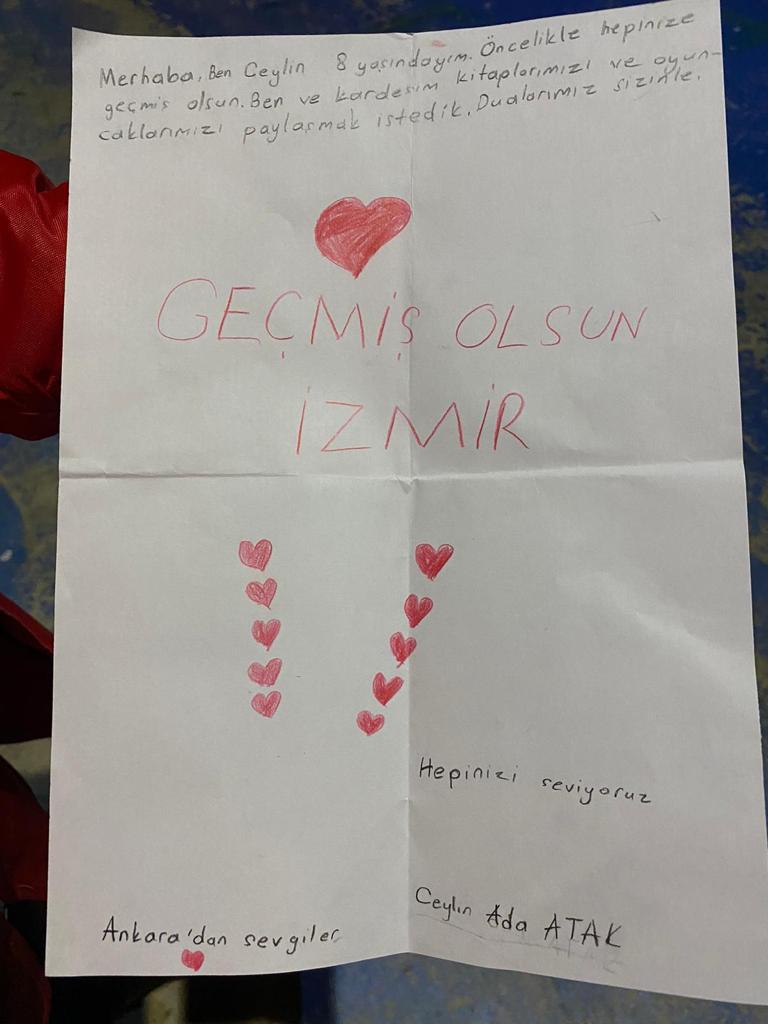 Merhaba, Ben Ceylin 8 yaşındayım. Öncelikle hepinize
geçmiş olsun. Ben ve kardeşim kitaplarımızı ve oyun-
caklarımızı paylaşmak istedik. Dualarımız sizinle.
GEÇMİŞ OLSUN
İZMİR
Hepinizi seviyoruz
Ceylin Ada ATAK
Ankara'dan sevgiler